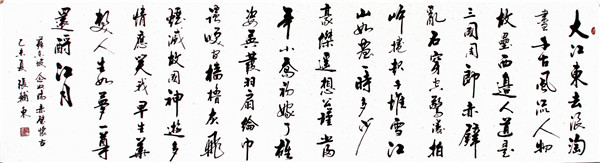 大江東去浪淘
盡千古風流人物
故壘西邊人道是
三國周郎赤壁
亂石穿空驚濤拍
岸捲起千堆雪江
山如畫一時多少
豪傑遙想公瑾當
年小喬初嫁了雄
姿英發羽扇綸巾
談笑間檣櫓灰飛
煙滅故國神遊多
情應笑我早生華
髮人生如夢一尊
還酹江月
蘇東坡念奴嬌赤壁懷古
乙未夏張東